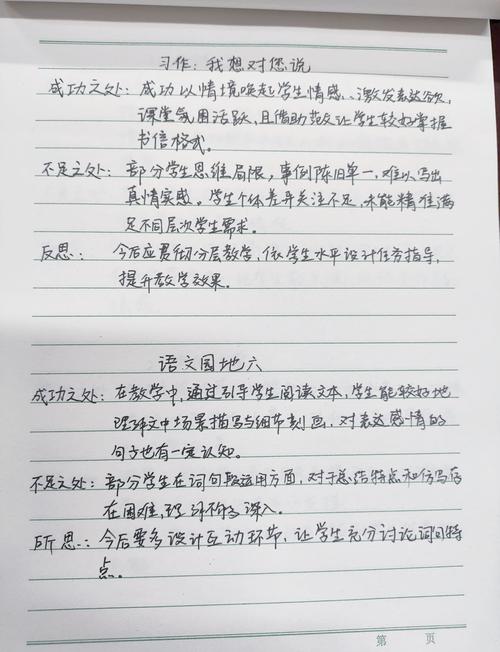 习作：我想对您说
成功之处：成功以情境唤起学生情感、激发表达欲，
课堂氛围活跃，且借助范文让学生较好掌握
书信格式。
不足之处：部分学生思维局限，事例陈旧单一，难以写出
真情实感。学生个体差异关注不足，未能精准满
足不同层次学生需求。
反思：今后应贯彻分层教学，依学生水平设计任务指导，
提升教学效果。
语文园地六
成功之处：在教学中，通过引导学生阅读文本，学生能较好地
理解文中场景描写与细节刻画，对表达感情的
句子也有一定认知。
不足之处：部分学生在词句段运用方面，对于总结特点和仿写存
在困难，理解不够深入。
所思：今后要多设计互动环节，让学生充分讨论词句特
点。
第 页